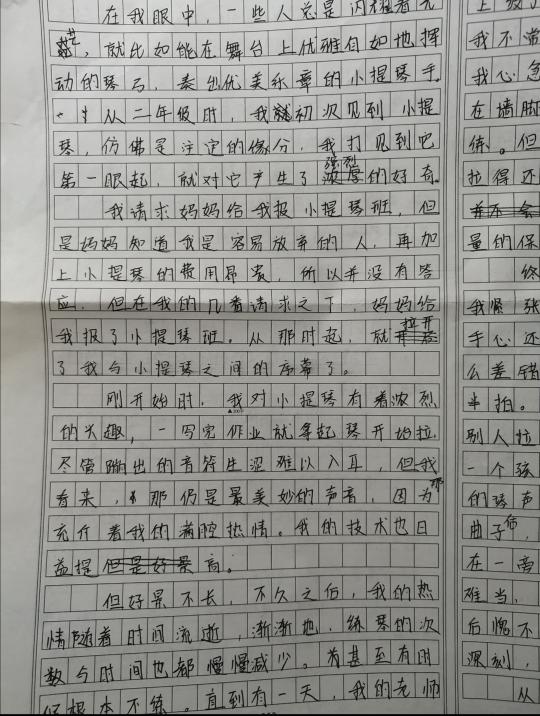 在我眼中，一些人总是闪耀着光
芒，就比如能在舞台上优雅自如地挥
动的琴弓，奏出优美乐章的小提琴手。
从二年级时，我就初次见到小提
琴，仿佛是注定的缘分，我打见到吧
第一眼起，就对它产生了强烈的好奇。
我请求妈妈给我报小提琴班，但
是妈妈知道我是容易放弃的人，再加
上小提琴的费用昂贵，所以并没有答
应，但在我的几番请求之下，妈妈给
我报了小提琴班。从那时起，就拉开
了我与小提琴之间的序幕了。
刚开始时，我对小提琴有着浓烈
的兴趣，一写完作业就拿起琴开始拉，
尽管蹦出的音符生涩难以入耳，但我
看来，那仍是最美妙的声音，因为那
充斥着我的满腔热情。我的技术也日
益提高。
但好景不长，不久之后，我的热
情随着时间流逝，渐渐地，练琴的次
数与时间也都慢慢减少。甚至有时
根本不练。直到有一天，我的老师
我不常
我心急
在墙脚
练。但
拉得还
量的保
我紧张
手心还
么差错
半拍。
别人拉
一个弦
的琴声
曲子
在一高
难当，
后悔不
深刻，
从